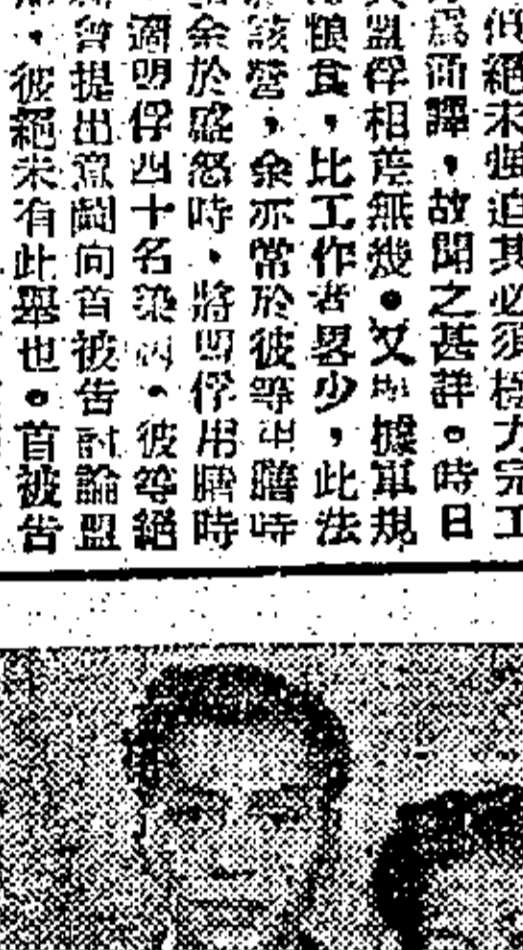 絕未強迫其必須極力完工
為面譯，故聞之甚詳。時日
盟俘相差無幾。又據軍規
粮食，比工作者畧少，此法
該營，余亦常於彼等用膳時
余於盛怒時，將盟俘用膳時
適盟俘四十名染病。彼等絕
曾提出意圖向首被告討論盟
，彼絕未有此舉也。首被告